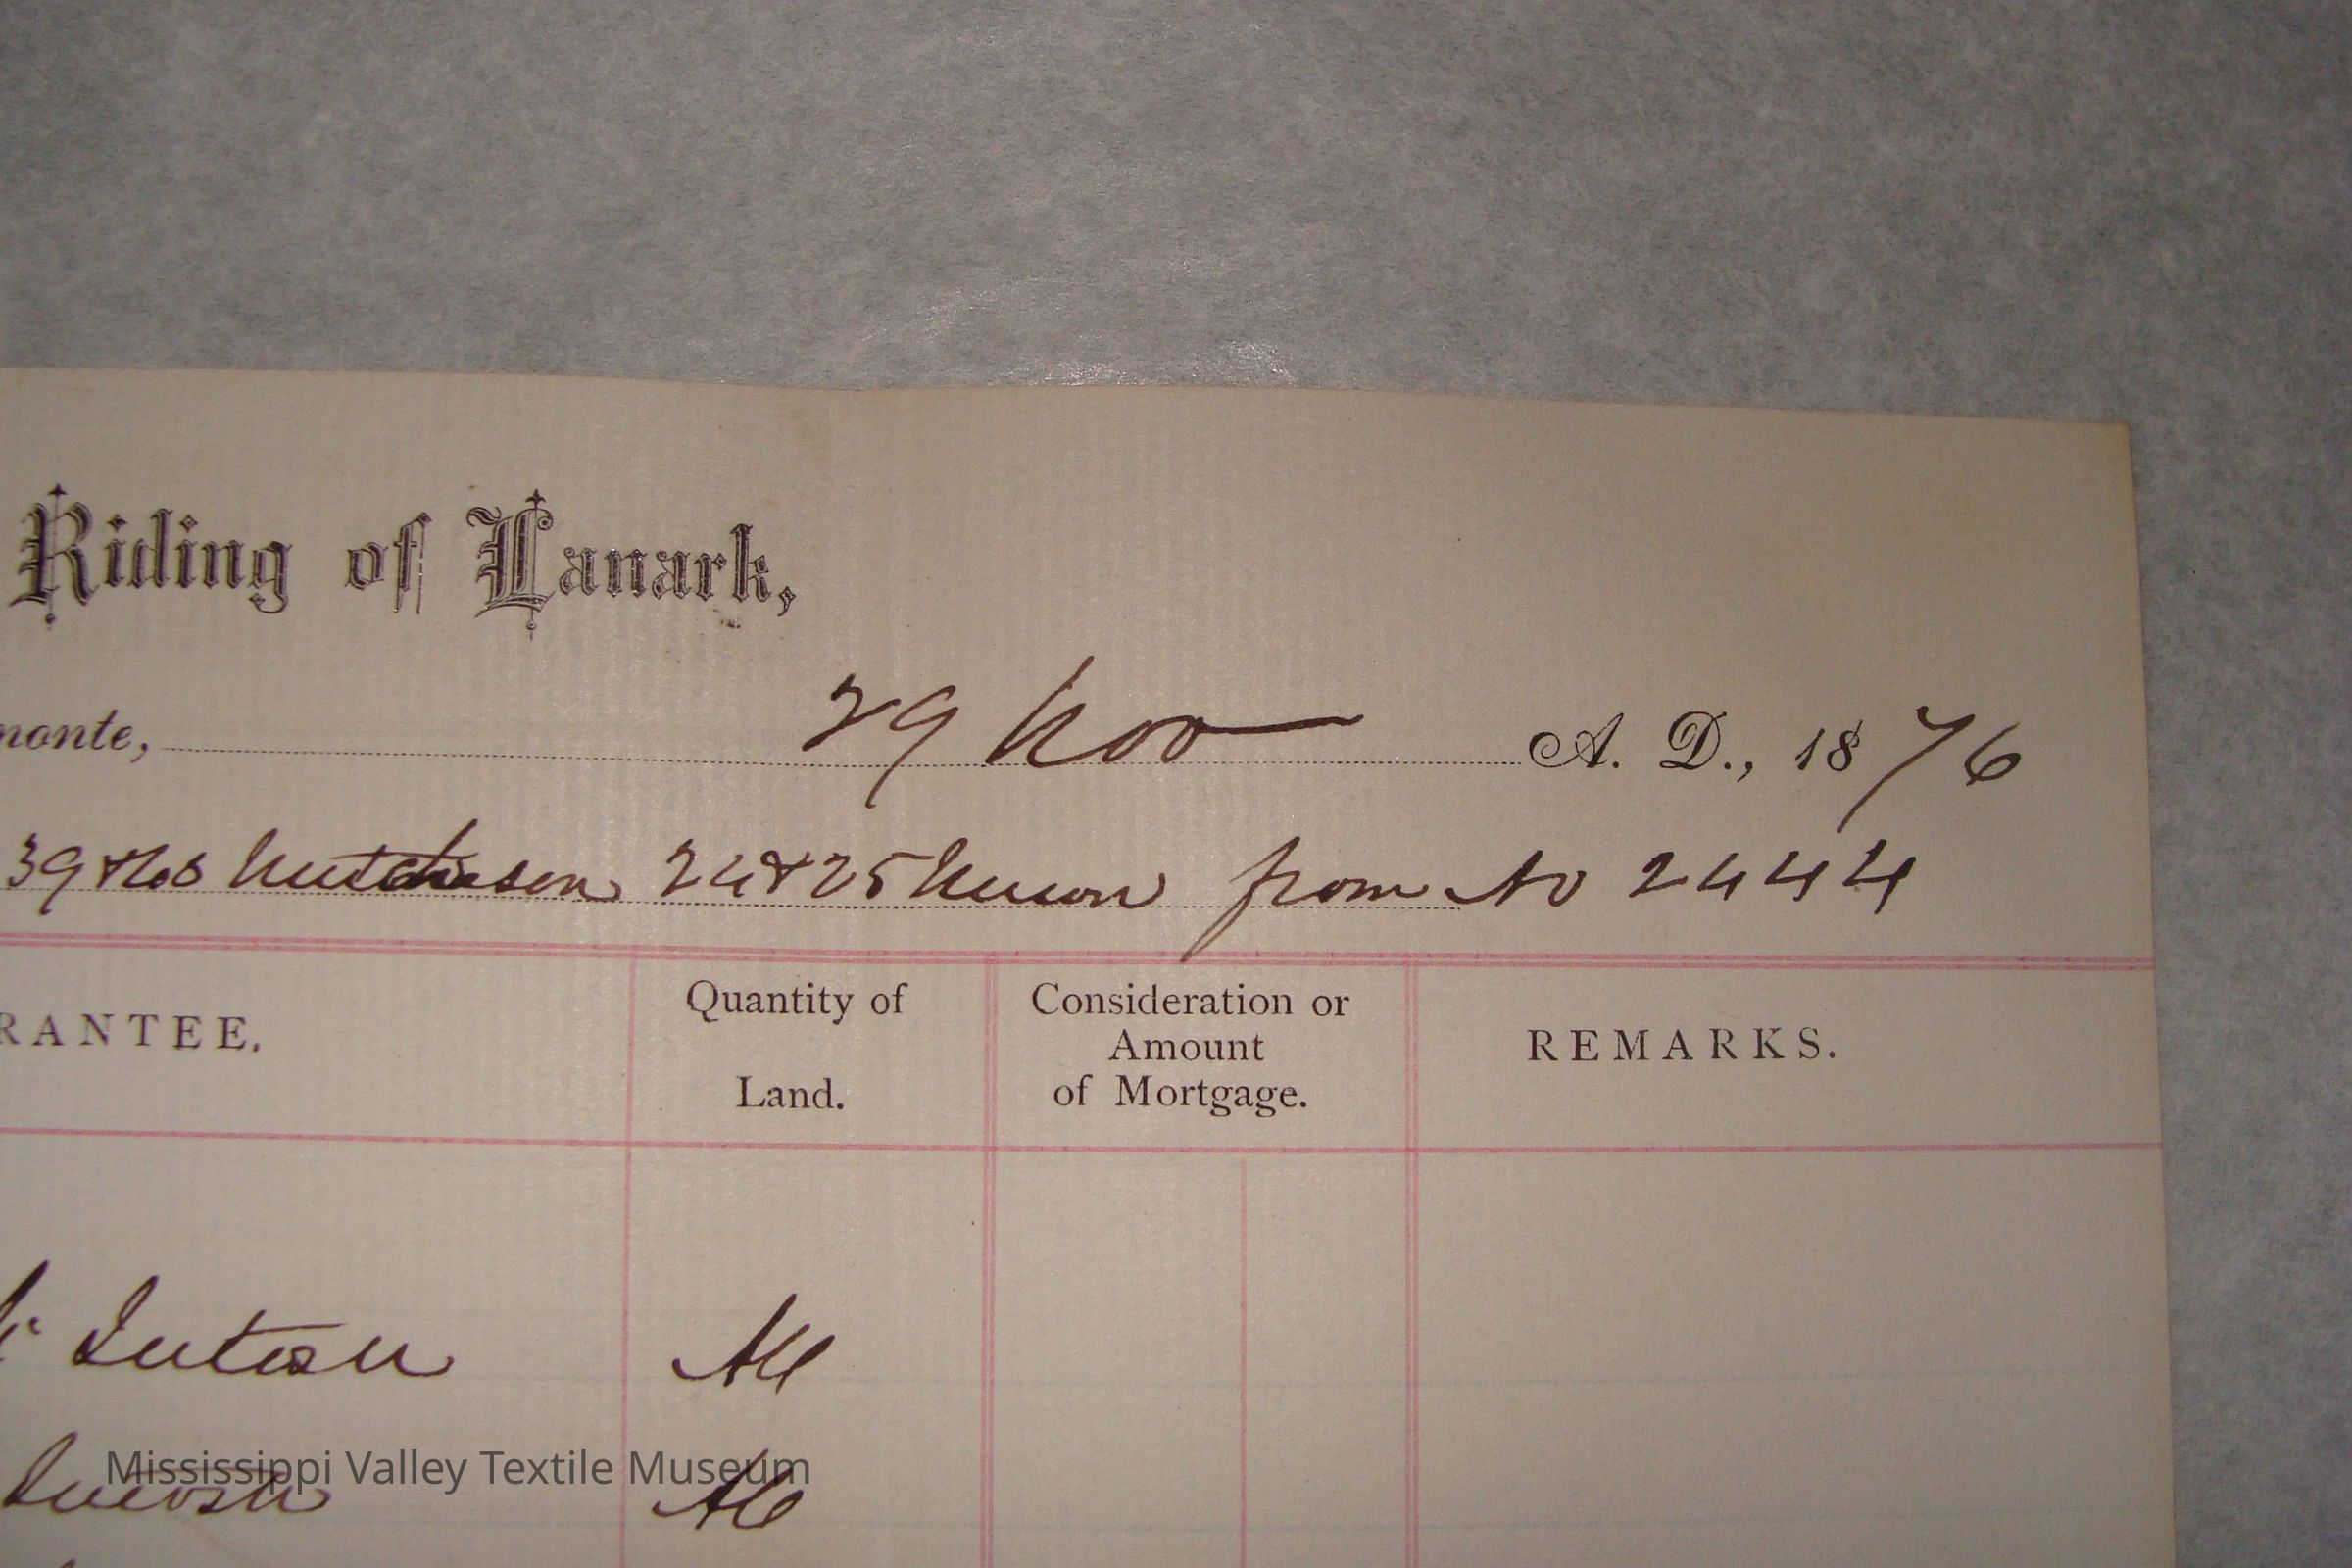 Riding of Lanark,
monte, 29 Nov A. D., 1876
39 & Hutchison 24 & 25 from to 2444
RANTEE.
Quantity of Land.
Consideration or Amount of Mortgage.
REMARKS.
Intosh All
Intosh All
Mississippi Valley Textile Museum